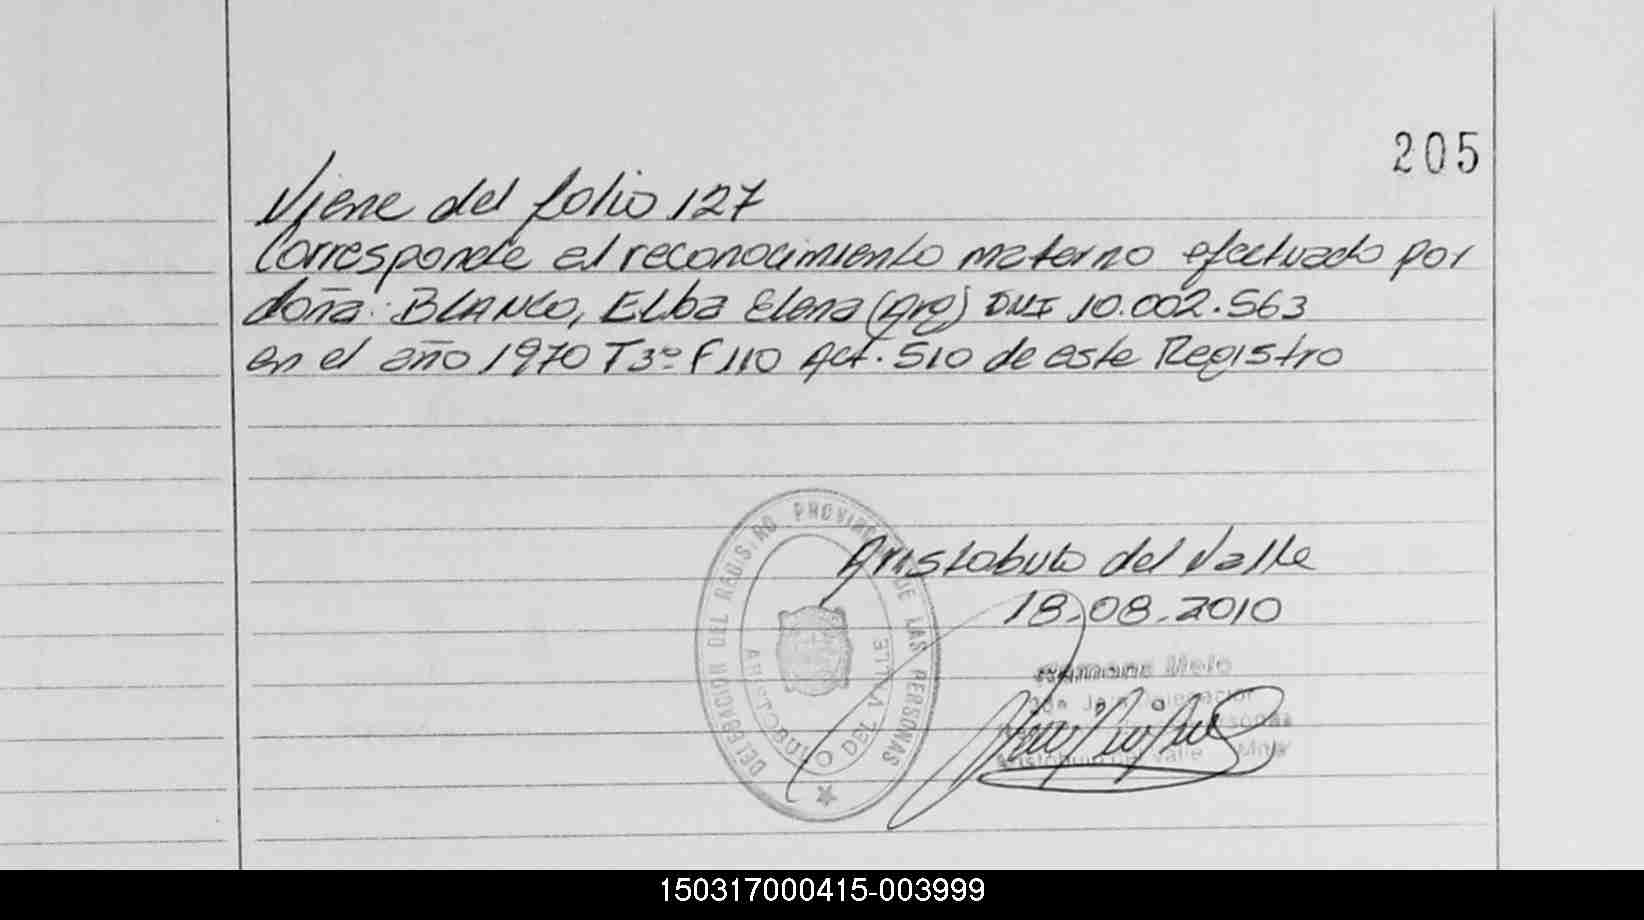 205
Viene del folio 127
Corresponde al reconocimiento materno efectuado por
doña: BLANCO, Elba Elena (Arg) DNI 10.002.563
en el año 1970 T3º F110 Act. 510 de este Registro
DELEGACION DEL REGISTRO PROVINCIAL DE LAS PERSONAS
ARISTOBULO DEL VALLE
Aristobulo del Valle
18.08.2010
Ramona Melo
Aristobulo del Valle
150317000415-003999